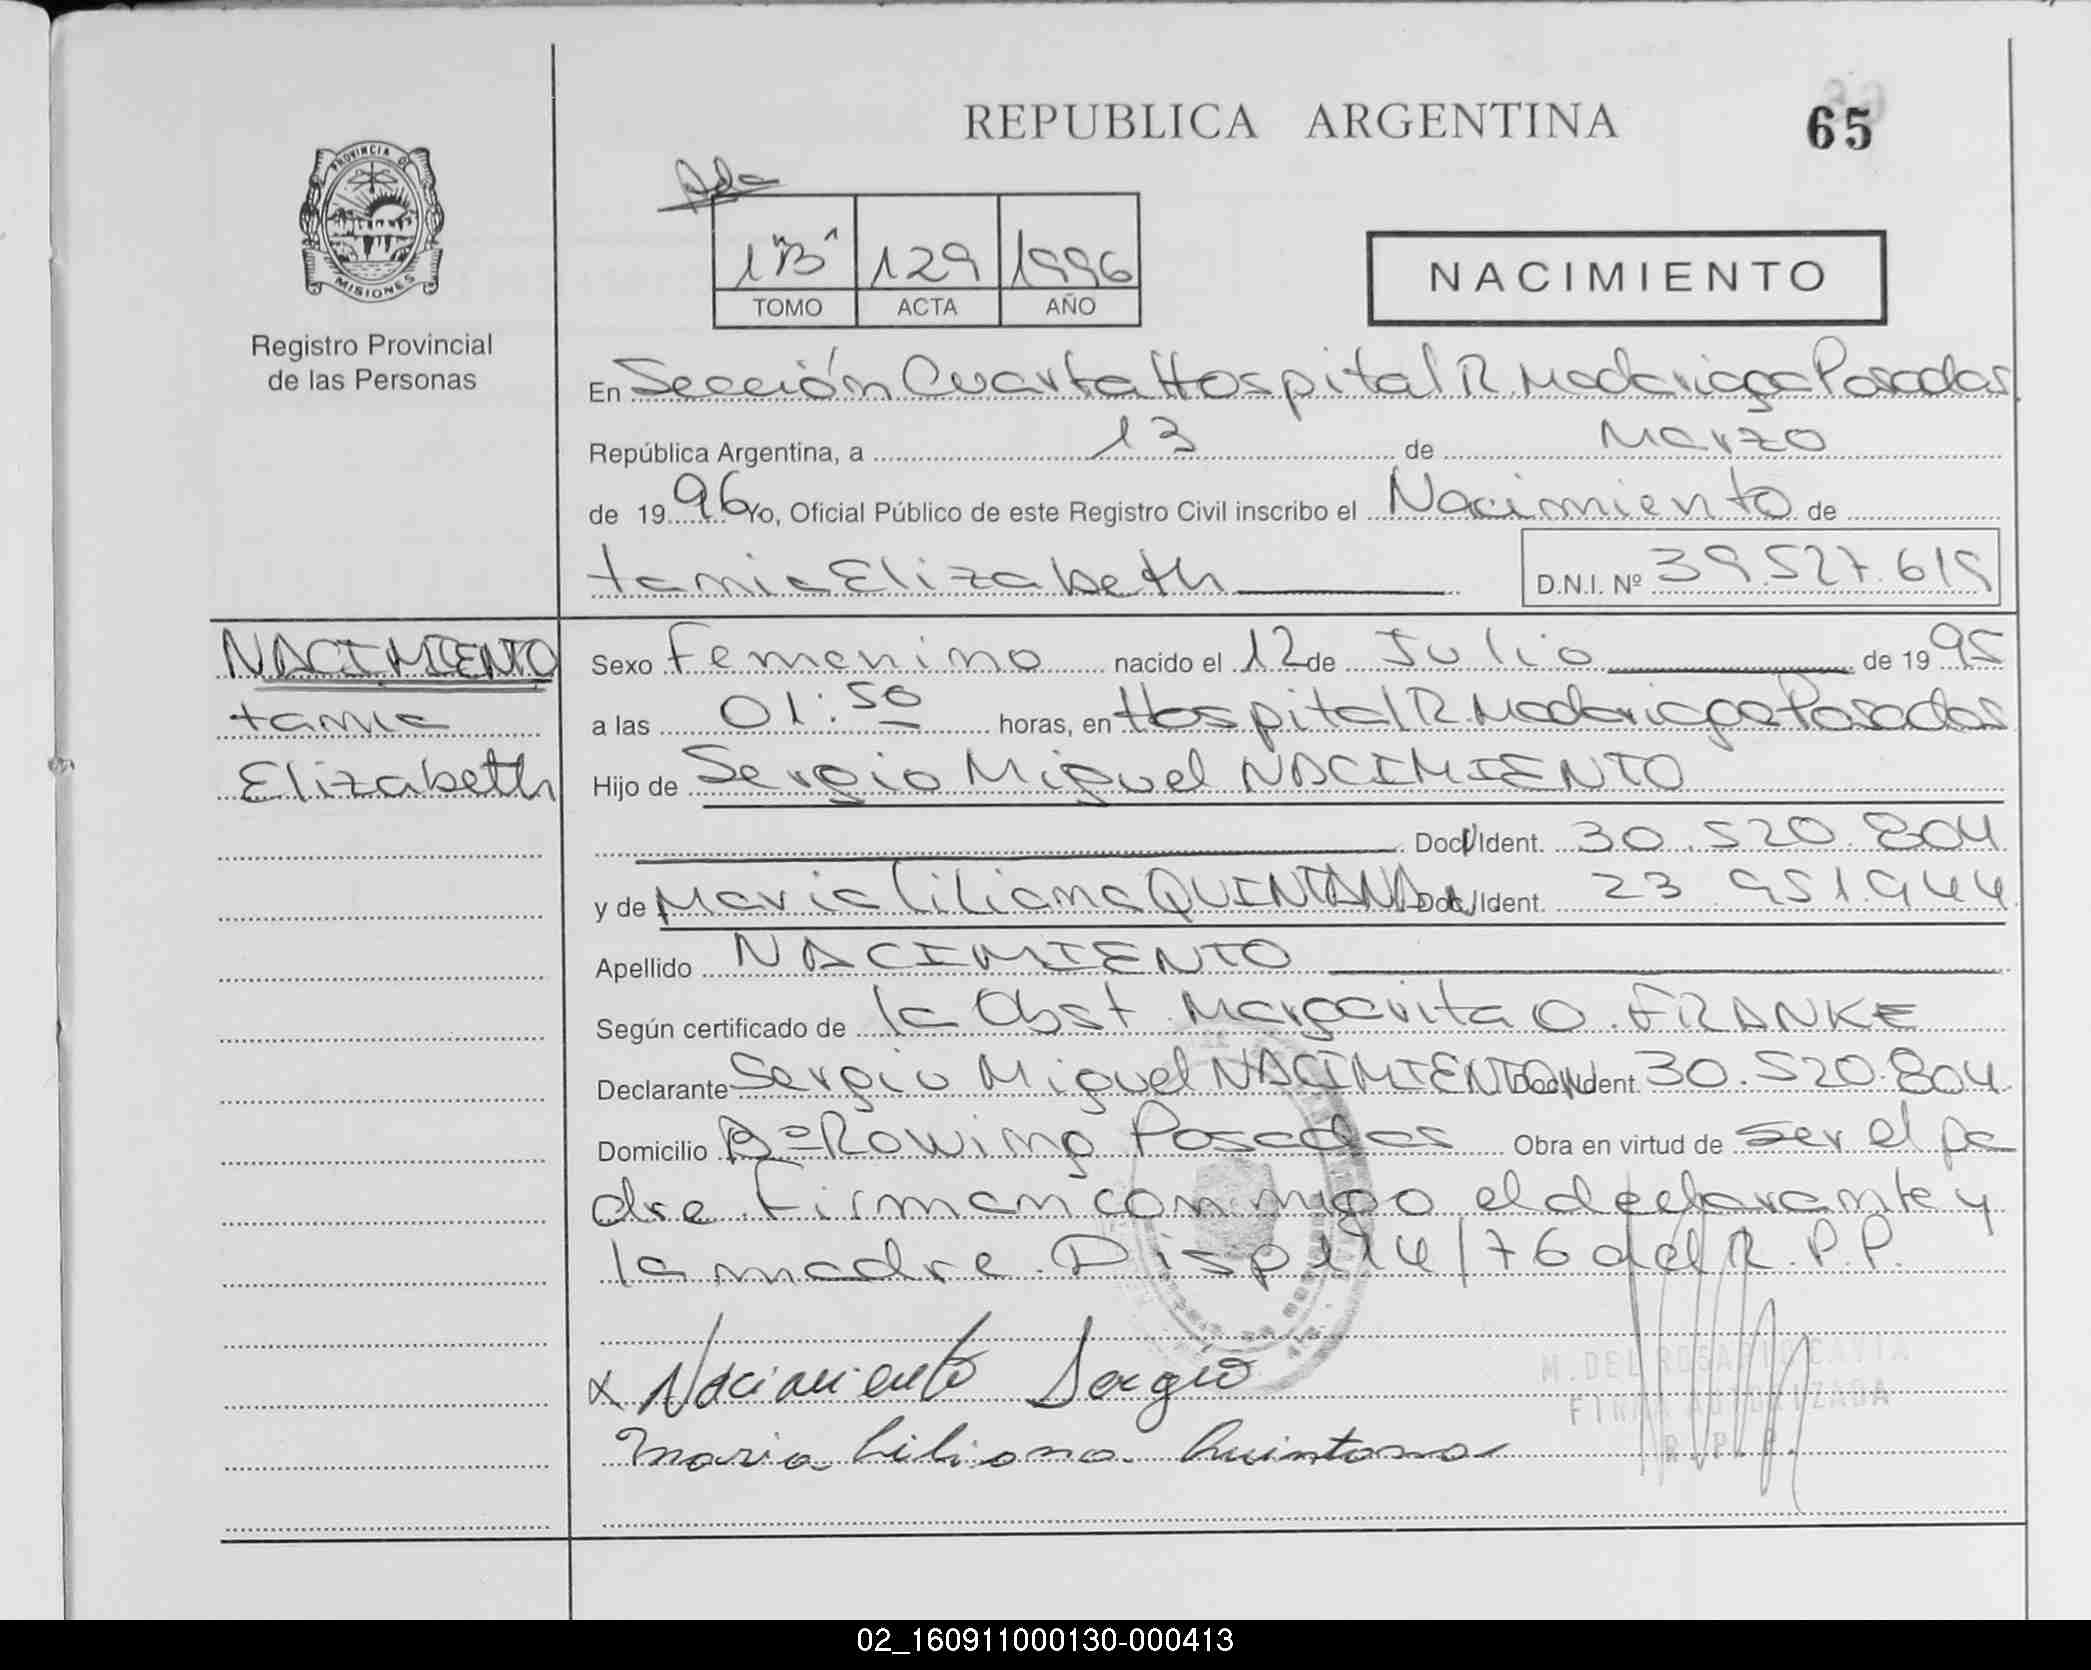 REPUBLICA ARGENTINA
65
PROVINCIA DE
MISIONES
Registro Provincial
de las Personas
1"B" 129 1996
TOMO ACTA AÑO
NACIMIENTO
En Sección Cuarta Hospital R. Madariaga Posadas
República Argentina, a 13 de Marzo
de 1996 Yo, Oficial Público de este Registro Civil inscribo el Nacimiento de
tania Elizabeth D.N.I. Nº 39.527.619
NACIMIENTO
tania
Elizabeth
Sexo Femenino nacido el 12 de Julio de 1995
a las 01:50 horas, en Hospital R. Madariaga Posadas
Hijo de Sergio Miguel NACIMIENTO
Doc. Ident. 30.520.804
y de Maria Liliana QUINTANA Doc. Ident. 23.951.944
Apellido NACIMIENTO
Según certificado de la Obst. Margarita O. FRANKE
Declarante Sergio Miguel NACIMIENTO Doc. Ident. 30.520.804
Domicilio Bº Rowing Posadas Obra en virtud de ser el pa
dre. Firman conmigo el declarante y
la madre. Disp 114/76 del R.P.P.
x Nacimiento Sergio
Maria Liliana Quintana
M. DEL ROSARIO
FIRMA AUTORIZADA
R. P. P.
02_160911000130-000413